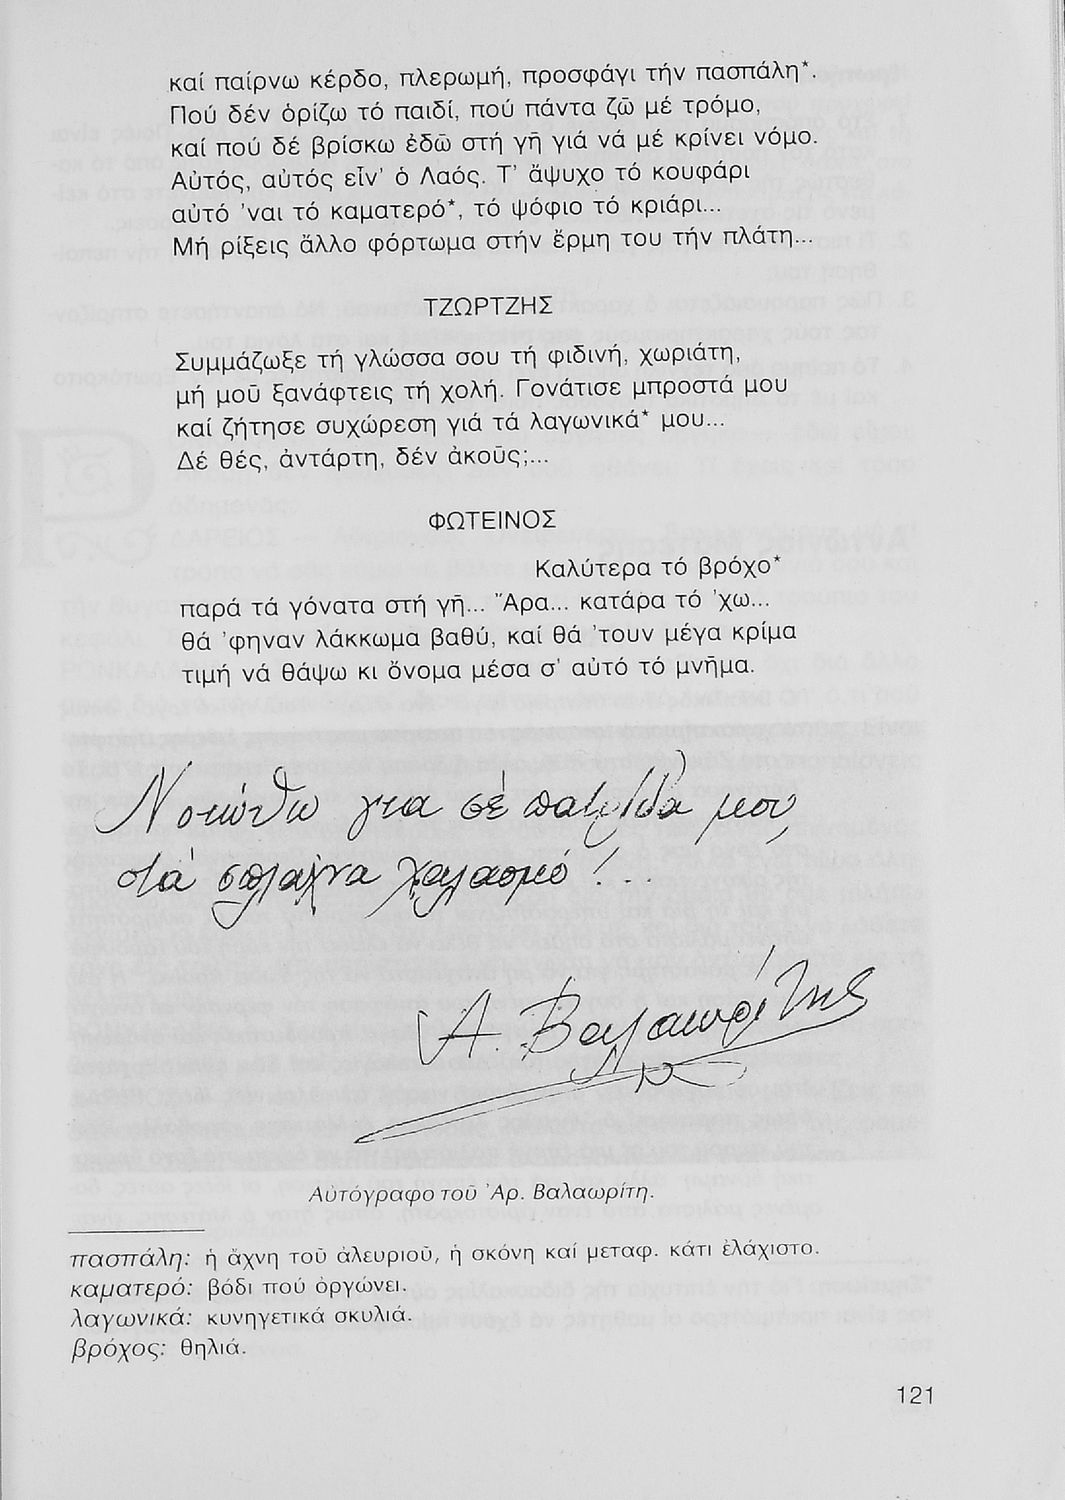 καί παίρνω κέρδο, πλερωμή, προσφάγι τήν πασπάλη*.
Πού δέν ὁρίζω τό παιδί, πού πάντα ζῶ μέ τρόμο,
καί πού δέ βρίσκω ἐδῶ στή γῆ γιά νά μέ κρίνει νόμο.
Αὐτός, αὐτός εἶν' ὁ Λαός. Τ' ἄψυχο τό κουφάρι
αὐτό 'ναι τό καματερό*, τό ψόφιο τό κριάρι...
Μή ρίξεις ἄλλο φόρτωμα στήν ἔρμη του τήν πλάτη...
ΤΖΩΡΤΖΗΣ
Συμμάζωξε τή γλώσσα σου τή φιδινή, χωριάτη,
μή μοῦ ξανάφτεις τή χολή. Γονάτισε μπροστά μου
καί ζήτησε συχώρεση γιά τά λαγωνικά* μου...
Δέ θές, ἀντάρτη, δέν ἀκοῦς;...
ΦΩΤΕΙΝΟΣ
Καλύτερα τό βρόχο*
παρά τά γόνατα στή γῆ... Ἄρα... κατάρα τό 'χω...
θά 'φηναν λάκκωμα βαθύ, καί θά 'τουν μέγα κρίμα
τιμή νά θάψω κι ὄνομα μέσα σ' αὐτό τό μνῆμα.
Νοιώθω για σέ πατρίδα μου
στά σπλάχνα χαλασμό!...
Α. Βαλαωρίτης
Αὐτόγραφο τοῦ Ἀρ. Βαλαωρίτη.
πασπάλη: ἡ ἄχνη τοῦ ἀλευριοῦ, ἡ σκόνη καί μεταφ. κάτι ἐλάχιστο.
καματερό: βόδι πού ὀργώνει.
λαγωνικά: κυνηγετικά σκυλιά.
βρόχος: θηλιά.
121